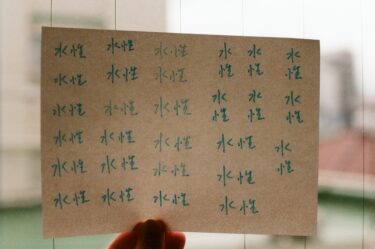 水性 水性 水性 水性 水性 水性
水性 水性 水性
水性 水性 水性 水性 水性 水性
水性 水性 水性 水性 水性
水性 水性 水性 水性
水性 水性 水性 水性